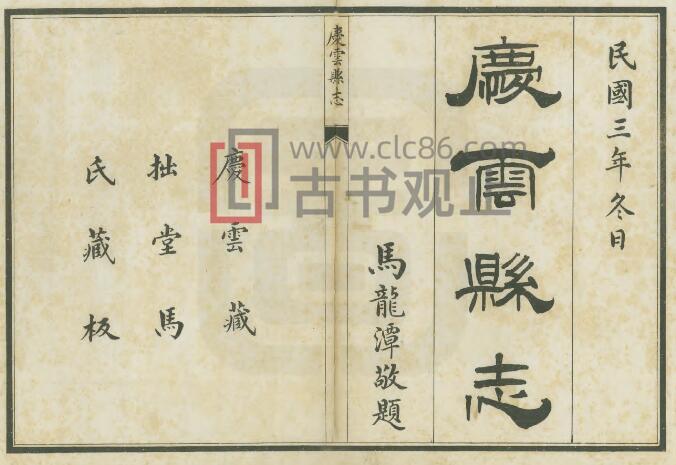 民國三年冬日
慶雲縣志
馬龍潭敬題
慶雲縣志
慶雲藏
拙堂馬
氏藏板
www.clc86.com
古书观止